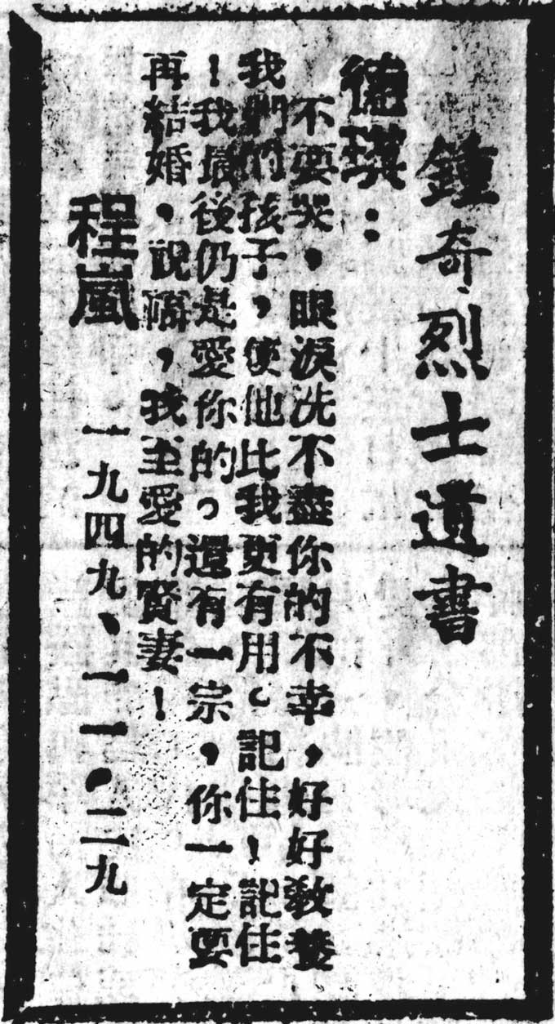 鍾奇烈士遺書
德琪：
不要哭，眼淚洗不盡你的不幸，好好教養
我們的孩子，使他比我更有用。記住！記住
！我最後仍是愛你的。還有一宗，你一定要
再結婚，祝福，我至愛的賢妻！
程嵐
一九四九、一一・二九